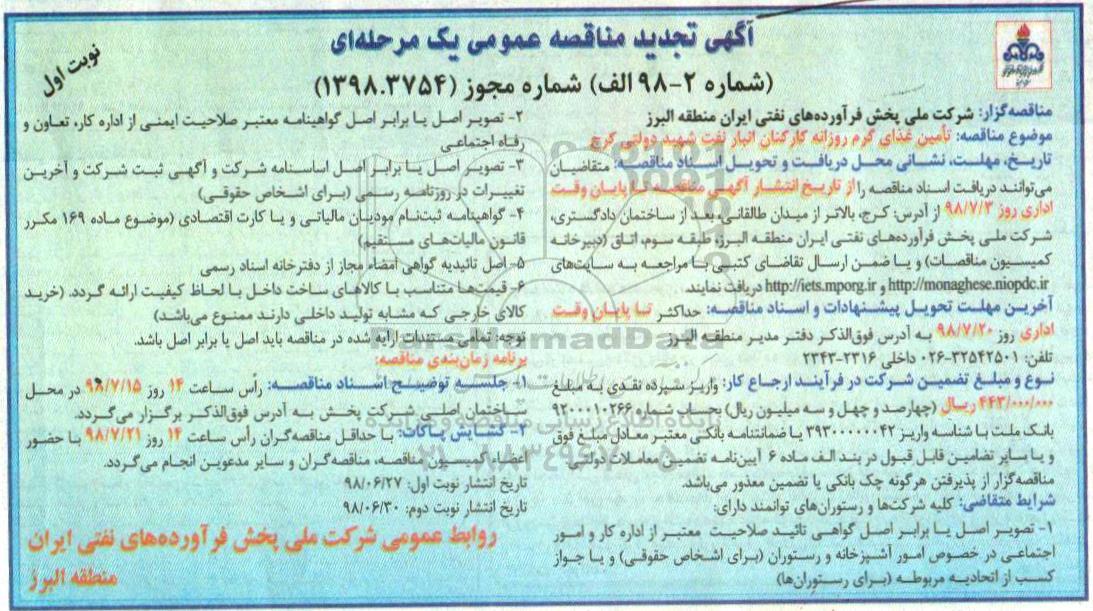 آگهی تجدید مناقصه عمومی یک مرحله‌ای
نوبت اول
(شماره ۲-۹۸ الف) شماره مجوز (۱۳۹۸.۳۷۵۴)
مناقصه‌گزار: شرکت ملی پخش فرآورده‌های نفتی ایران منطقه البرز
موضوع مناقصه: تأمین غذای گرم روزانه کارکنان انبار نفت شهید دولتی کرج
تاریخ، مهلت، نشانی محل دریافت و تحویل اسناد مناقصه: متقاضیان
می‌توانند دریافت اسناد مناقصه را از تاریخ انتشار آگهی مناقصه تا پایان وقت
اداری روز ۹۸/۷/۳ از آدرس: کرج، بالاتر از میدان طالقانی، بعد از ساختمان دادگستری،
شرکت ملی پخش فرآورده‌های نفتی ایران منطقه البرز، طبقه سوم، اتاق (دبیرخانه
کمیسیون مناقصات) و یا ضمن ارسال تقاضای کتبی با مراجعه به سایت‌های
http://monaghese.niopdc.ir و http://iets.mporg.ir دریافت نمایند.
آخرین مهلت تحویل پیشنهادات و اسناد مناقصه: حداکثر تا پایان وقت
اداری روز ۹۸/۷/۲۰ به آدرس فوق‌الذکر دفتر مدیر منطقه البرز
تلفن: ۳۲۵۴۲۵۰۱-۰۲۶ داخلی ۲۳۱۶-۲۳۴۳
نوع و مبلغ تضمین شرکت در فرآیند ارجاع کار: واریز سپرده نقدی به مبلغ
۴۴۳/۰۰۰/۰۰۰ ریال (چهارصد و چهل و سه میلیون ریال) بحساب شماره ۹۲۰۰۰۱۰۲۶۶
بانک ملت با شناسه واریز ۳۹۳۰۰۰۰۰۰۴۲ یا ضمانتنامه بانکی معتبر معادل مبلغ فوق
و یا سایر تضامین قابل قبول در بند الف ماده ۶ آیین‌نامه تضمین معاملات دولتی.
مناقصه‌گزار از پذیرفتن هرگونه چک بانکی یا تضمین معذور می‌باشد.
شرایط متقاضی: کلیه شرکت‌ها و رستوران‌های توانمند دارای:
۱- تصویر اصل یا برابر اصل گواهی تائید صلاحیت معتبر از اداره کار و امور
اجتماعی در خصوص امور آشپزخانه و رستوران (برای اشخاص حقوقی) و یا جواز
کسب از اتحادیه مربوطه (برای رستوران‌ها)
۲- تصویر اصل یا برابر اصل گواهینامه معتبر صلاحیت ایمنی از اداره کار، تعاون و
رفاه اجتماعی
۳- تصویر اصل یا برابر اصل اساسنامه شرکت و آگهی ثبت شرکت و آخرین
تغییرات در روزنامه رسمی (برای اشخاص حقوقی)
۴- گواهینامه ثبت‌نام مودیان مالیاتی و یا کارت اقتصادی (موضوع ماده ۱۶۹ مکرر
قانون مالیات‌های مستقیم)
۵- اصل تائیدیه گواهی امضاء مجاز از دفترخانه اسناد رسمی
۶- قیمت‌ها متناسب با کالاهای ساخت داخل با لحاظ کیفیت ارائه گردد. (خرید
کالای خارجی که مشابه تولید داخلی دارند ممنوع می‌باشد)
توجه: تمامی مستندات ارایه شده در مناقصه باید اصل یا برابر اصل باشد.
برنامه زمان‌بندی مناقصه:
۱- جلسه توضیح اسناد مناقصه: رأس ساعت ۱۴ روز ۹۸/۷/۱۵ در محل
ساختمان اصلی شرکت پخش به آدرس فوق‌الذکر برگزار می‌گردد.
۲- گشایش پاکات: با حداقل مناقصه‌گران رأس ساعت ۱۴ روز ۹۸/۷/۲۱ با حضور
اعضاء کمیسیون مناقصه، مناقصه‌گران و سایر مدعوین انجام می‌گردد.
تاریخ انتشار نوبت اول: ۹۸/۰۶/۲۷
تاریخ انتشار نوبت دوم: ۹۸/۰۶/۳۰
روابط عمومی شرکت ملی پخش فرآورده‌های نفتی ایران
منطقه البرز
ParsNamadData